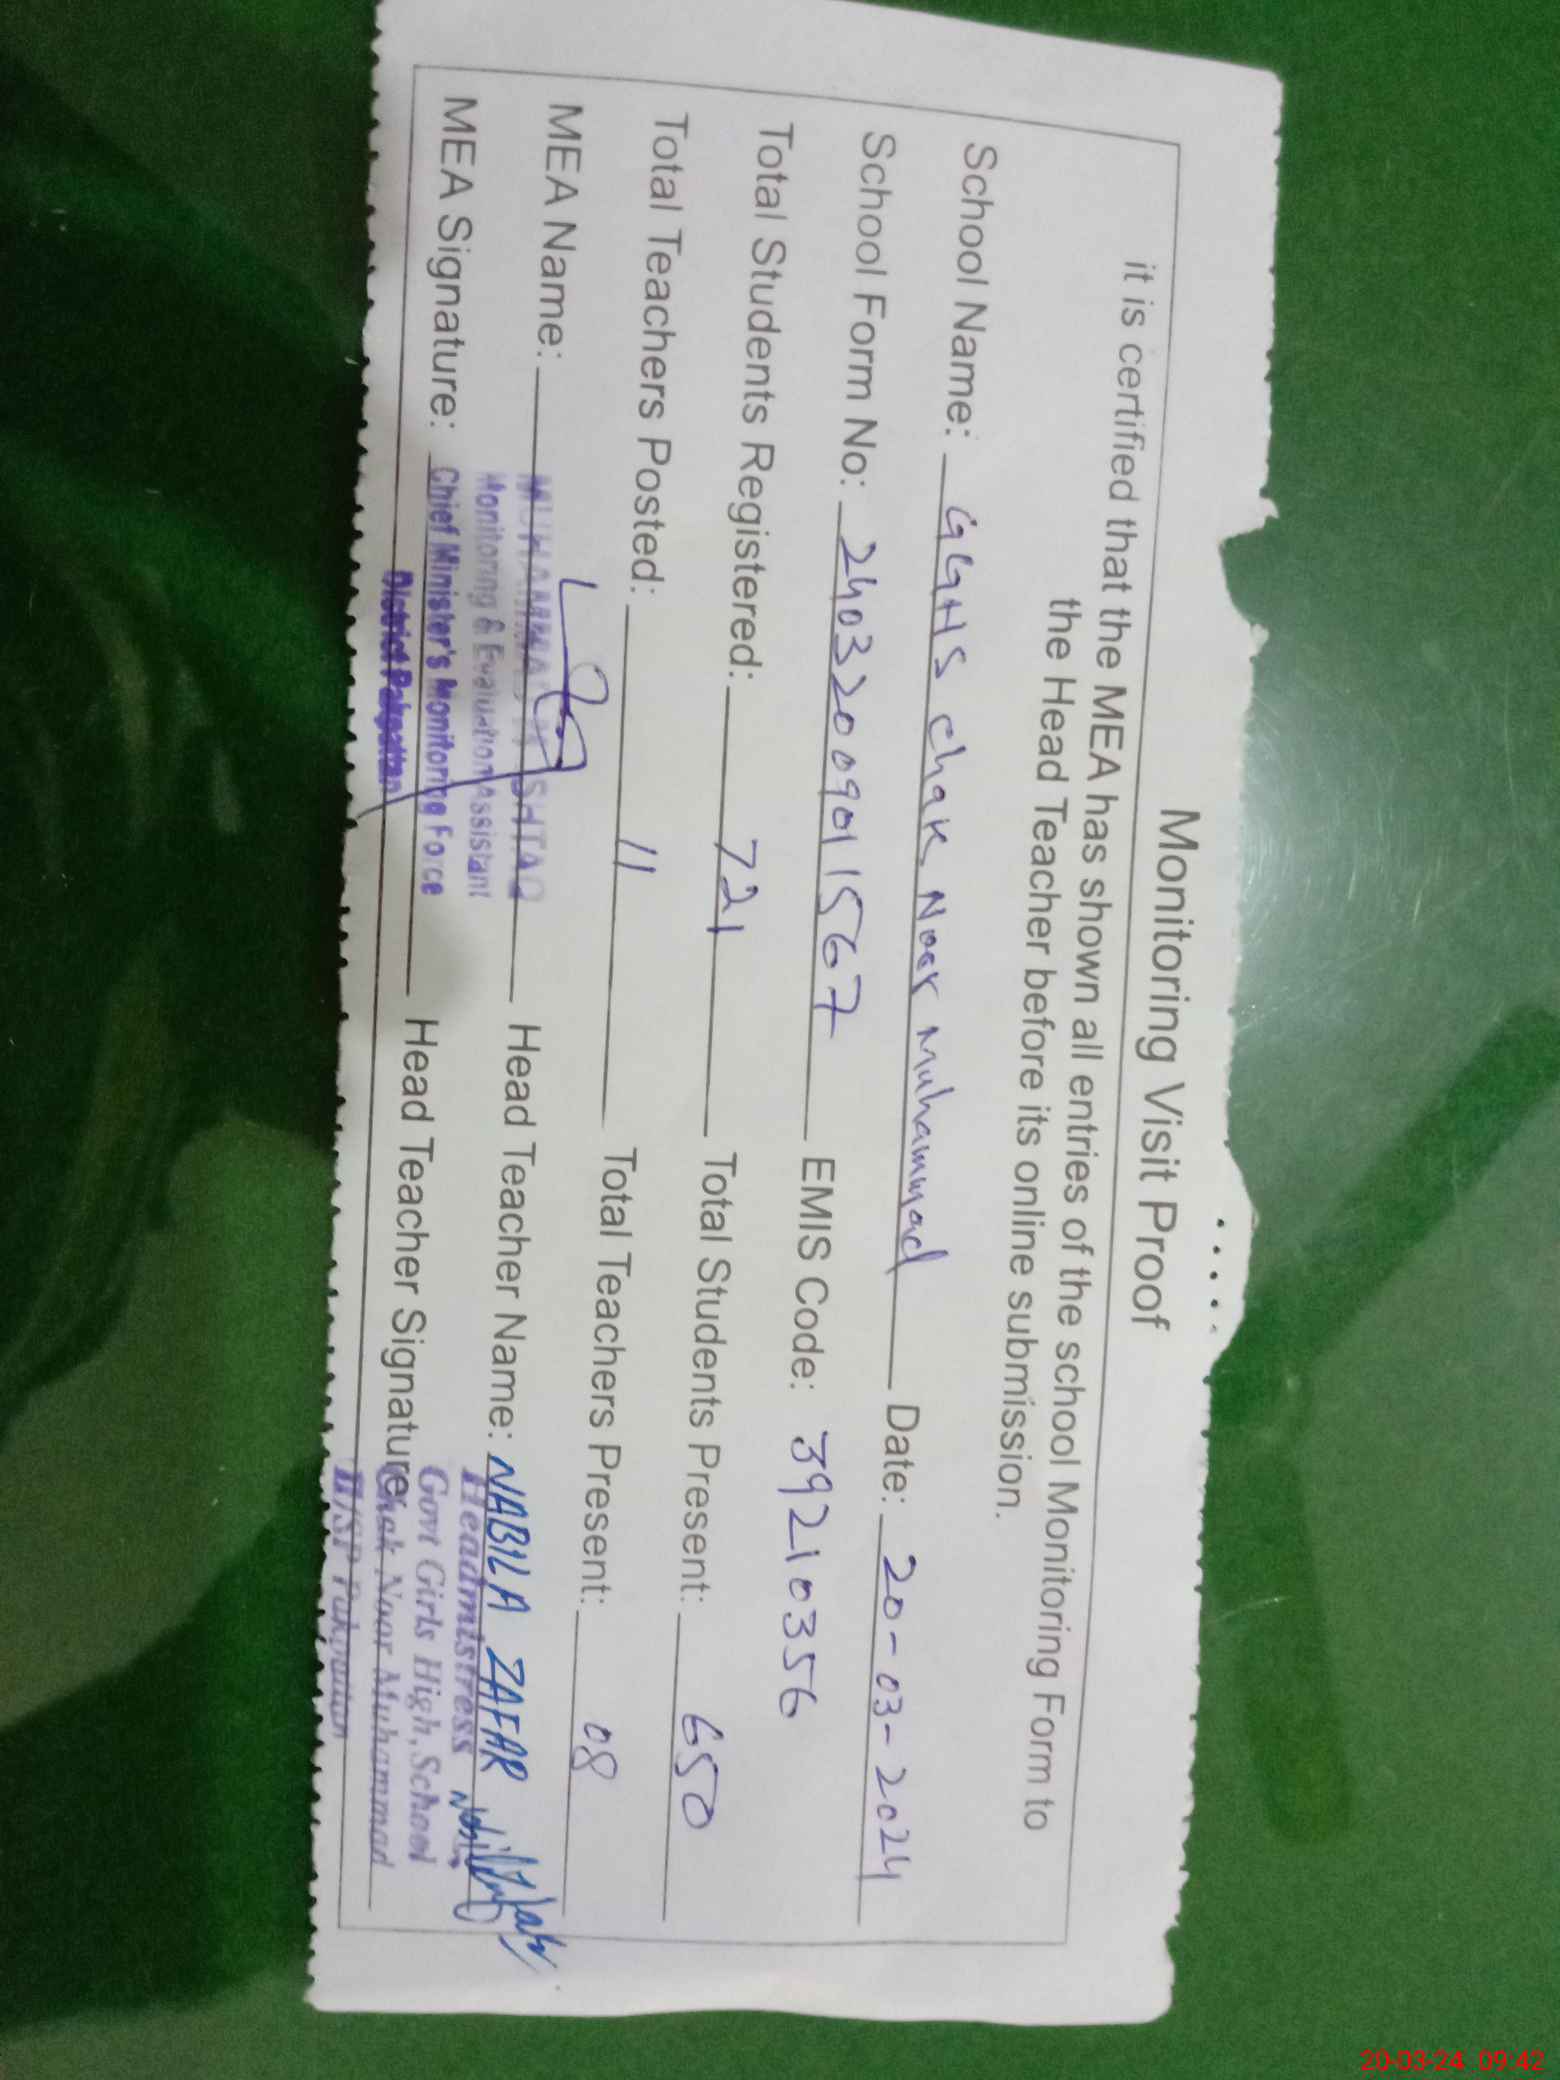 Monitoring Visit Proof
it is certified that the MEA has shown all entries of the school Monitoring Form to
the Head Teacher before its online submission.
School Name: GGHS Chak Noor Muhammad Date: 20-03-2024
School Form No: 24032009011567 EMIS Code: 39210356
Total Students Registered: 721 Total Students Present: 650
Total Teachers Posted: 11 Total Teachers Present: 08
MEA Name: Head Teacher Name: NABILA ZAFAR
MUHAMMAD MUSHTAQ
Monitoring & Evaluation Assistant
Chief Minister's Monitoring Force
District Pakpattan
MEA Signature: Head Teacher Signature:
Headmistress
Govt Girls High School
Chak Noor Muhammad
Pakpattan
20-03-24 09:42